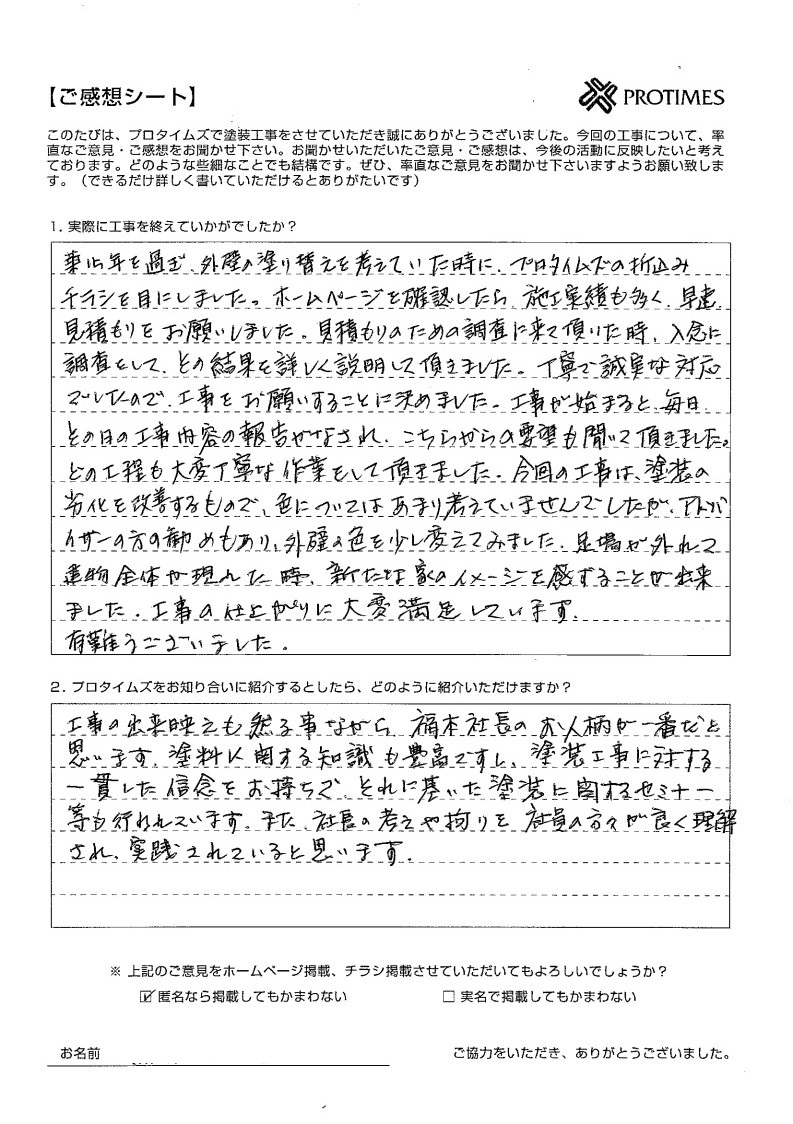 【ご感想シート】
PROTIMES
このたびは、プロタイムズで塗装工事をさせていただき誠にありがとうございました。今回の工事について、率
直なご意見・ご感想をお聞かせ下さい。お聞かせいただいたご意見・ご感想は、今後の活動に反映したいと考え
ております。どのような些細なことでも結構です。ぜひ、率直なご意見をお聞かせ下さいますようお願い致しま
す。（できるだけ詳しく書いていただけるとありがたいです）
1. 実際に工事を終えていかがでしたか？
年を過ぎ、外壁の塗り替えを考えていた時に、プロタイムズの折込み
チラシを目にしました。ホームページを確認したら、施工実績も多く、早速
見積もりをお願いしました。見積もりのための調査に来て頂いた時、入念に
調査をして、その結果を詳しく説明して頂きました。丁寧で誠実な対応
でしたので、工事をお願いすることに決めました。工事が始まると、毎日、
その日の工事内容の報告がなされ、こちらからの要望も聞いて頂きました。
どの工程も大変丁寧な作業をして頂きました。今回の工事は、塗装の
劣化を改善するもので、色についてはあまり考えていませんでしたが、アドバ
イザーの方の勧めもあり、外壁の色を少し変えてみました。足場が外れて
建物全体が現れた時、新たな家のイメージを感ずることが出来
ました。工事の仕上がりに大変満足しています。
有難うございました。
2. プロタイムズをお知り合いに紹介するとしたら、どのように紹介いただけますか？
工事の出来映えも然る事ながら、福本社長のお人柄が一番だと
思います。塗料に関する知識も豊富ですし、塗装工事に対する
一貫した信念をお持ちで、それに基いた塗装に関するセミナー
等も行われています。また、社長の考えや拘りを社員の方々が良く理解
され、実践されていると思います。
※ 上記のご意見をホームページ掲載、チラシ掲載させていただいてもよろしいでしょうか？
☑ 匿名なら掲載してもかまわない　□ 実名で掲載してもかまわない
お名前　ご協力をいただき、ありがとうございました。